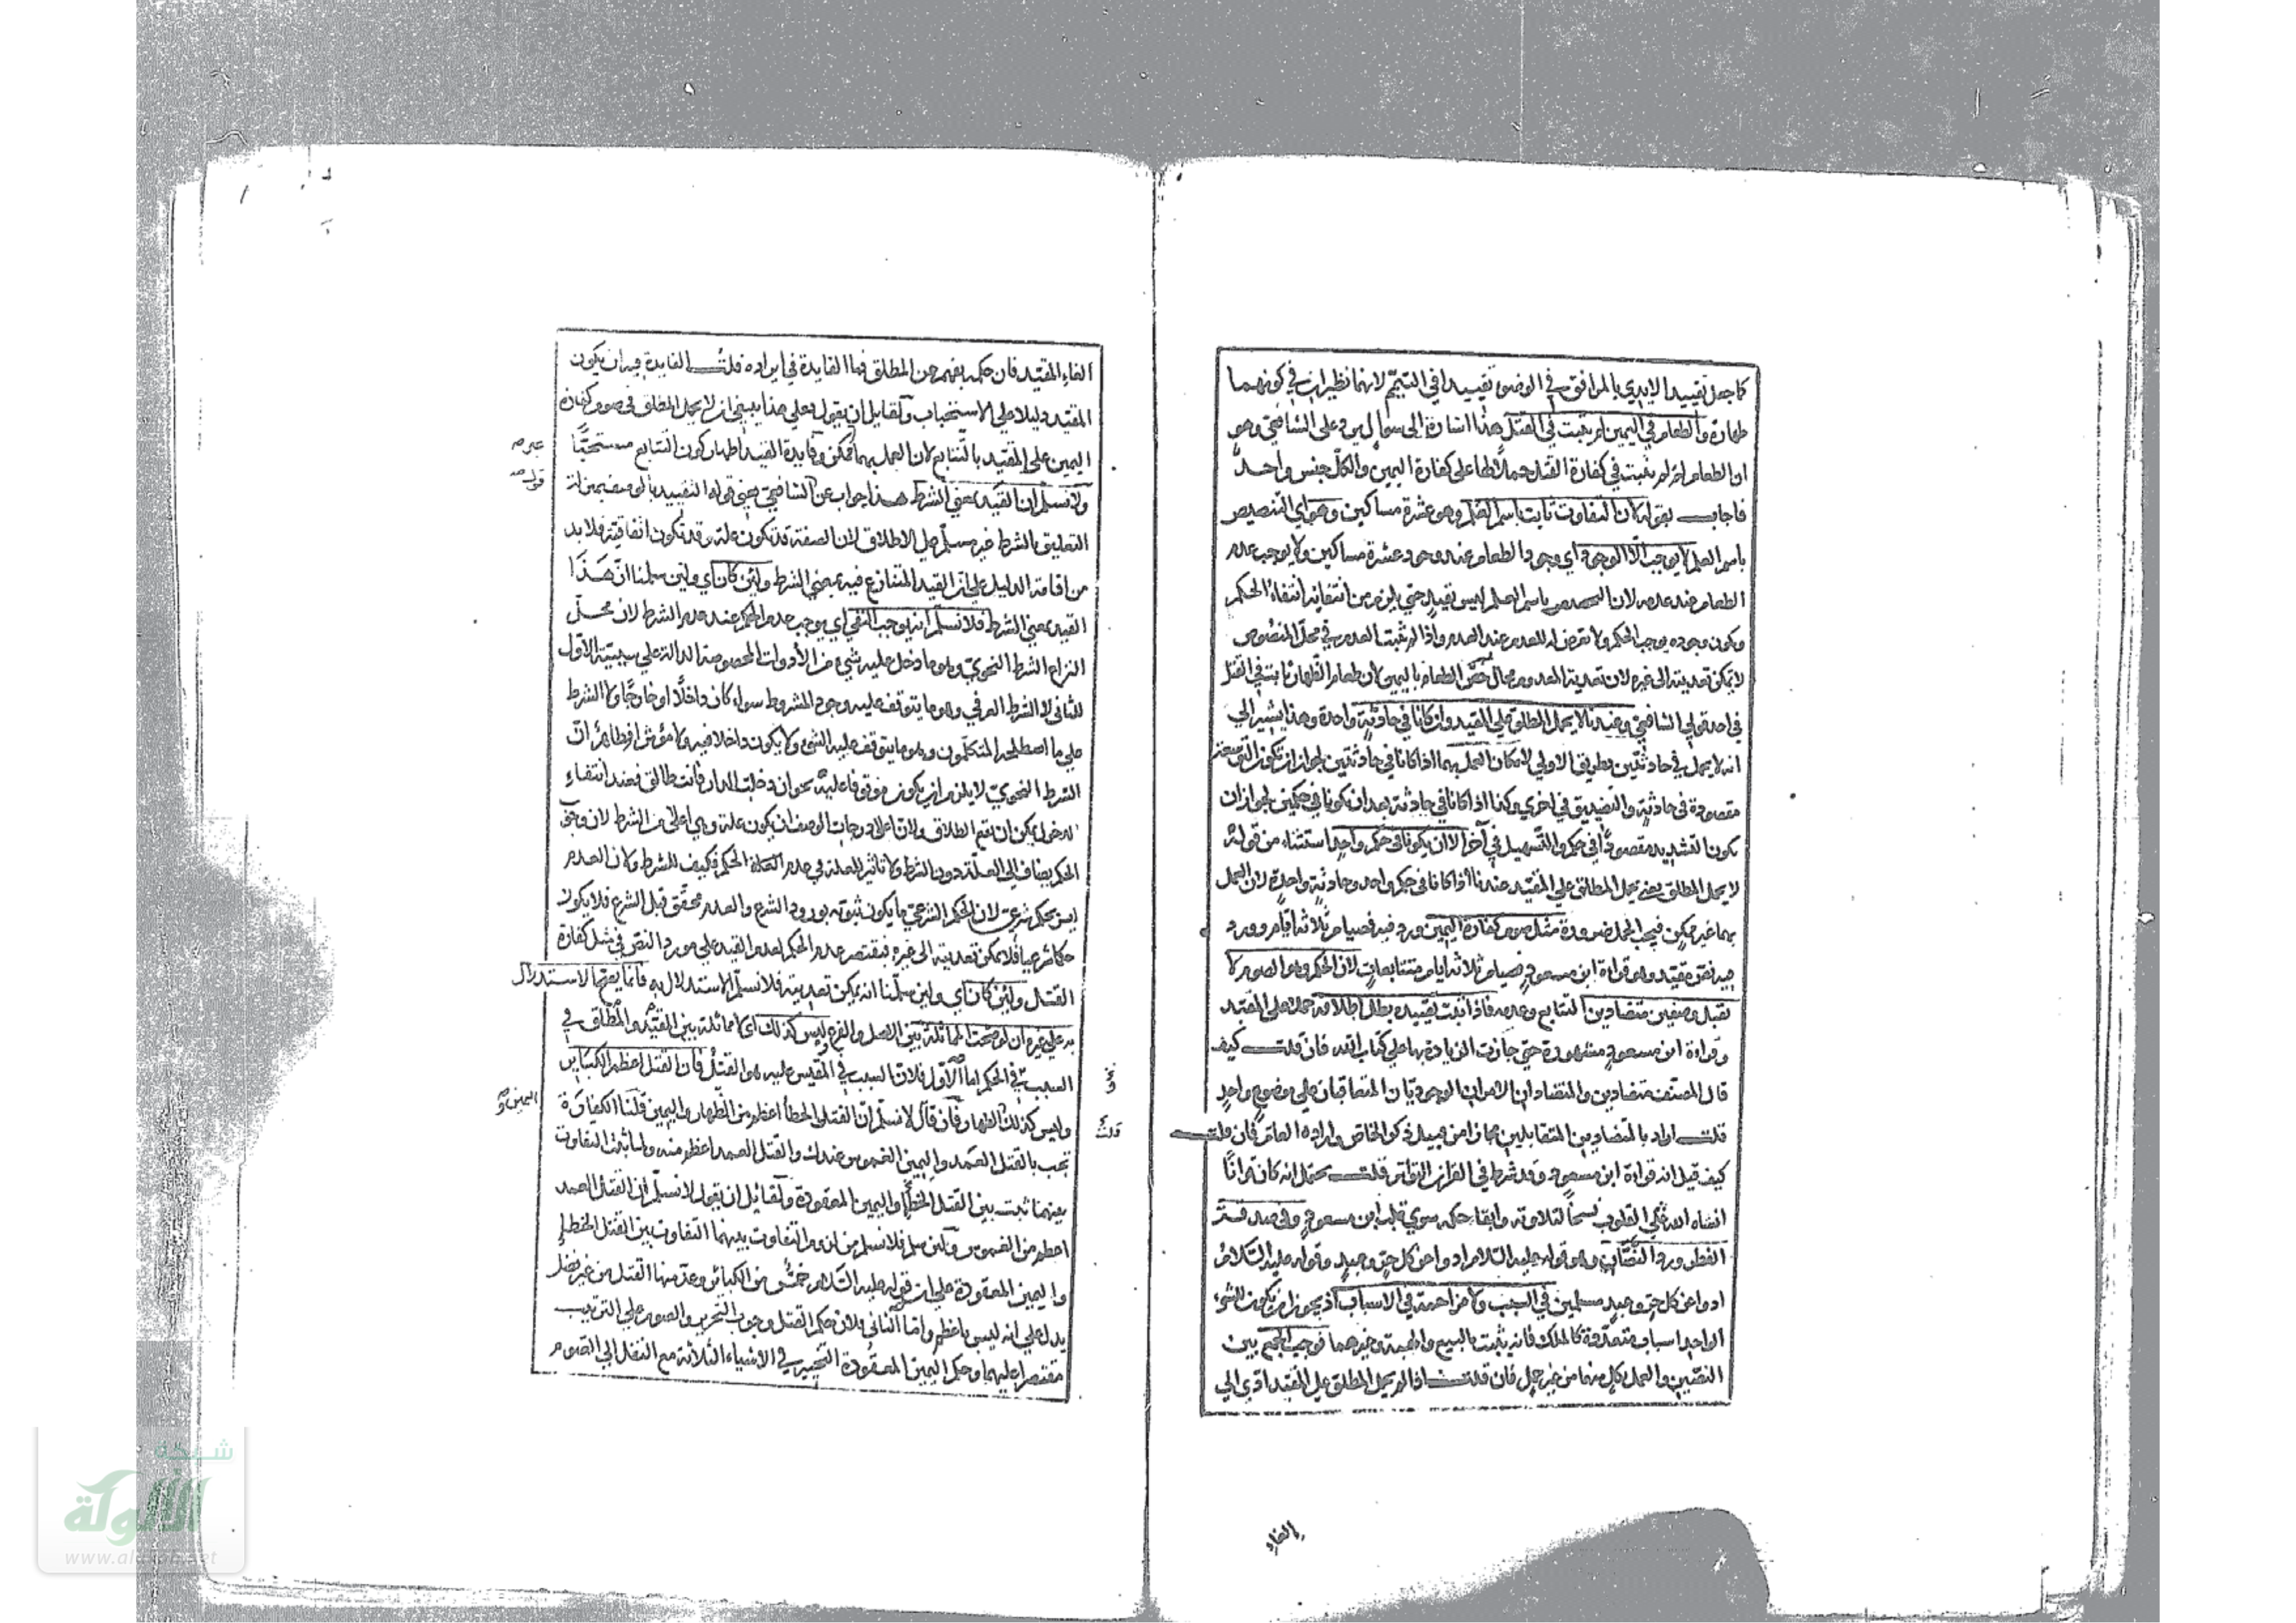 كما جعل تقييد الايدي بالمرافق في الوضوء تقييدا في التيمم لانهما نظيران في كونهما
طهارة والطعام في اليمين لم يثبت في القتل هذا اشارة الى سوال يرد على الشافعي وهو
ان الطعام لم يثبت في كفارة القتل حملا لها على كفارة اليمين والكل جنس واحد
فاجاب بقوله لان التفاوت ثابت باسم العلم وهو عشرة مساكين وهو اي التنصيص
باسم العلم لا يوجب الا الوجود اي وجود الطعام عند وجود عشرة مساكين ولا يوجب عدم
الطعام عند عدمه لان باسم العلم ليس بقيد حتى يلزم من انتفائه انتفاء الحكم
وكون وجوده يوجب الحكم ولا تعرض له للعدم عند العدم واذا لم يثبت العدم في محل المنصوص
لا يمكن تعديته الى غيره لان تعدية المعدوم محال خص الطعام باليمين لان طعام الظهار ثابت في القتل
في احد قولي الشافعي وعندنا لا يحمل المطلق على المقيد وان كانا في حادثة واحدة وهذا يشير الى
انه لا يحمل في حادثتين بطريق الاولى لامكان العمل بهما اذا كانا في حادثتين لجواز ان تكون التوسعة
مقصودة في حادثة والتضييق في اخرى وكذا اذا كانا في حادثة بعد ان يكونا في حكمين لجواز ان
يكون التشديد مقصودا في حكم والتسهيل في آخر الا ان يكونا في حكم واحد استثناء من قوله
لا يحمل المطلق يعني يحمل المطلق على المقيد عندنا اذا كانا في حكم واحد وحادثة واحدة لان العمل
بهما غير ممكن فيجب الحمل ضرورة مثل صوم كفارة اليمين ورد فيه فصيام ثلاثة ايام وورد
فيه نص مقيد وهو قراءة ابن مسعود فصيام ثلاثة ايام متتابعات لان الحكم وهو الصوم لا
يقبل وصفين متضادين التتابع وعدمه فاذا ثبت تقييده بطل اطلاقه حملا على المقيد
وقراءة ابن مسعود مشهورة حتى جازت الزيادة بها على كتاب الله فان قلت كيف
قال المصنف متضادين والمتضادان الامران الوجوديان المتعاقبان على موضوع واحد
قلت اراد بالمتضادين المتقابلين مجازا من قبيل ذكر الخاص وارادة العام فان قلت
كيف قيل انه قراءة ابن مسعود وقد شرط في القران التواتر قلت يحتمل انه كان قرانا
انساه الله على القلوب نسخا لتلاوته وابقا حكمه سوى قلب ابن مسعود وفي صدقة
الفطر ورد النصان وهو قوله عليه السلام ادوا عن كل حر وعبد وقوله عليه السلام
ادوا عن كل حر وعبد مسلمين في السبب ولا مزاحمة في الاسباب اذ يجوز ان يكون للشيء
الواحد اسباب متعددة كالملك فانه يثبت بالبيع والهبة وغيرهما فوجب الجمع بين
النصين والعمل بكل منهما من غير حمل فان قلت اذا لم يحمل المطلق على المقيد ادى الى
الغاء
الغاء المقيد فان حكمه يفهم من المطلق فما الفايدة في ايراده قلت الفايدة فيه ان يكون
المقيد دليلا على الاستحباب ولقايل ان يقول فعلى هذا ينبغي ان لا يحمل المطلق في صوم كفارة
اليمين على المقيد بالتتابع لان العمل بهما ممكن وفايدة القيد اظهار كون التتابع مستحبا
ولا نسلم ان القيد بمعنى الشرط هذا جواب عن الشافعي يعني قوله التقييد بالوصف بمنزلة
التعليق بالشرط غير مسلم على الاطلاق لان الصفة قد تكون علة وقد تكون اتفاقية فلا بد
من اقامة الدليل على ان القيد المتنازع فيه بمعنى الشرط ولئن كان اي ولئن سلمنا ان هذا
القيد بمعنى الشرط فلا نسلم انه يوجب النفي اي يوجب عدم الحكم عند عدم الشرط لان محل
النزاع الشرط النحوي وهو ما دخل عليه شيء من الأدوات المخصوصة الدالة على سببية الاول
للثاني لا الشرط العرفي وهو ما يتوقف عليه وجود المشروط سواء كان داخلا او خارجا ولا الشرط
على ما اصطلحه المتكلمون وهو ما يتوقف عليه الشيء ولا يكون داخلا فيه ولا مؤثرا فظاهر ان
الشرط النحوي لا يلزم ان يكون موقوفا عليه نحو ان دخلت الدار فانت طالق فعند انتفاء
الدخول يمكن ان يقع الطلاق ولان اعلى درجات الوصف ان يكون علة وهي اعلى من الشرط لان وجود
الحكم يضاف الى العلة دون الشرط ولا تاثير للعلة في عدم الحكم فكيف للشرط ولان العدم
ليس بحكم شرعي لان الحكم الشرعي ما يكون ثبوته بورود الشرع والعدم محقق قبل الشرع فلا يكون
حكما شرعيا فلا يمكن تعديته الى غيره فيقتصر عدم الحكم لعدم القيد على مورد النص في مثل كفارة
القتل ولئن كان اي ولئن سلمنا انه يمكن تعديته فلا نسلم الاستدلال به فانما يصح الاستدلال
به على غيره ان لو صحت المماثلة بين الاصل والفرع وليس كذلك اي لا مماثلة بين المقيد والمطلق في
السبب في الحكم اما الاول فلان السبب في المقيس عليه هو القتل فان القتل اعظم الكبائر
وليس كذلك الظهار فان قال لا نسلم ان القتل الخطأ اعظم من الظهار واليمين قلنا الكفارة
تجب بالقتل العمد واليمين الغموس عندك والقتل العمد اعظم منه ولما ثبت التفاوت
بينهما ثبت بين القتل الخطإ واليمين المعقودة ولقائل ان يقول لا نسلم ان القتل العمد
اعظم من الغموس ولئن سلم فلا نسلم من لزوم التفاوت بينهما التفاوت بين القتل الخطإ
واليمين المعقودة على ان قوله عليه السلام خمس من الكبائر وعد منها القتل من غير فصل
يدل على انه ليس باعظم واما الثاني فلان حكم القتل وجوب التحرير والصوم على الترتيب
مقتصرا عليهما وحكم اليمين المعقودة التخيير في الاشياء الثلاثة مع النقل الى الصوم
قلت
شبكة
الألوكة
www.alukah.net